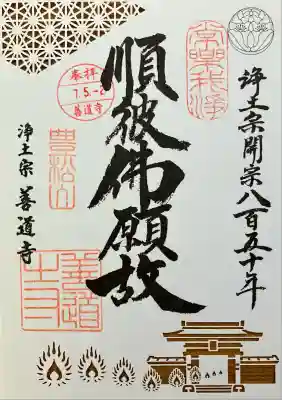 浄土宗開宗八百五十年
常樂我浄
順彼佛願故
奉拝
7.5.-2
善道寺
豊松山
浄土宗 善道寺